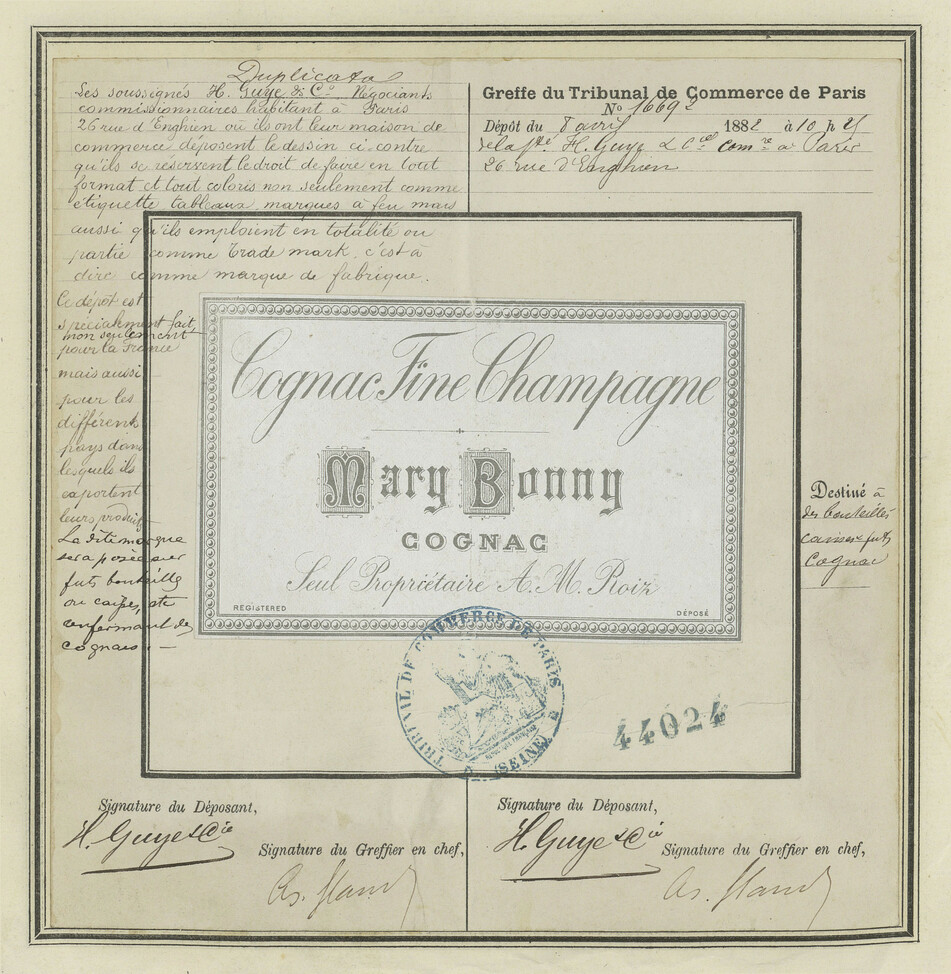 Duplicata
Les soussignés H. Guye & Cº Négociants
commissionnaires habitant à Paris
26 rue d'Enghien où ils ont leur maison de
commerce déposent le dessin ci-contre
qu'ils se réservent le droit de faire en tout
format et tout coloris non seulement comme
étiquette tableaux, marques à feu mais
aussi qu'ils emploient en totalité ou
partie comme trade mark, c'est à
dire comme marque de fabrique.
Ce dépôt est
spécialement fait,
non seulement
pour la France
mais aussi
pour les
différents
pays dans
lesquels ils
exportent
leurs produits
La dite marque
sera posée sur
futs bouteilles
ou caisses, etc
renfermant des
cognacs. —
Greffe du Tribunal de Commerce de Paris
Nº 16692
Dépôt du 8 avril 1882 à 10 h 25
de la sté H. Guye & Cie comre à Paris
26 rue d'Enghien
Cognac Fine Champagne
Mary Bonny
COGNAC
Seul Propriétaire A. M. Roiz
REGISTERED
DÉPOSÉ
Destiné à
des bouteilles
caisses futs
Cognac
TRIBUNAL DE COMMERCE DE PARIS
(SEINE)
44024
Signature du Déposant,
H. Guye & Cie
Signature du Greffier en chef,
Signature du Déposant,
H. Guye & Cie
Signature du Greffier en chef,